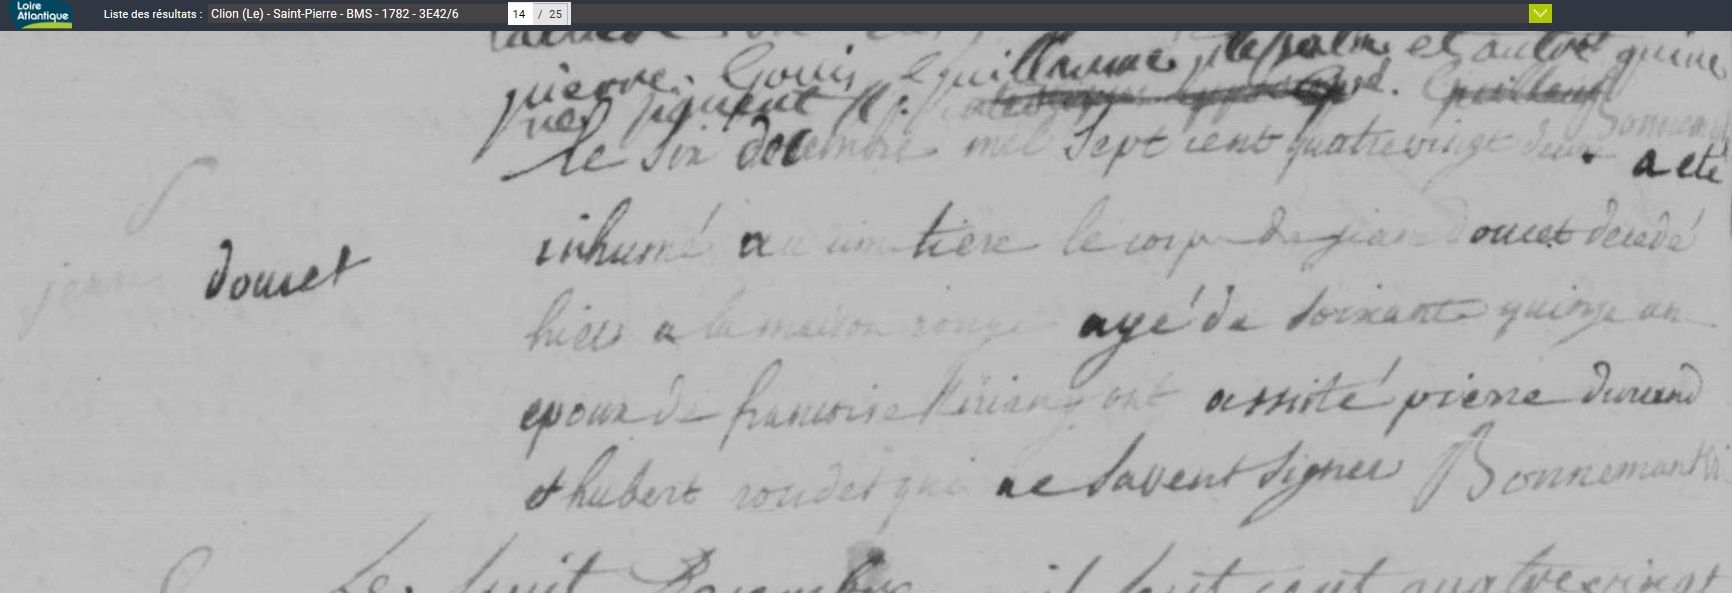 Loire
Atlantique
Liste des résultats : Clion (Le) - Saint-Pierre - BMS - 1782 - 3E42/6
14 / 25
pierre Guillaume et autre
signent
Bonnemant
le six decembre mil sept cent quatrevingt deux a eté
inhumé au cimetiere le corp de jean doucet decedé
jean doucet
hier a la maison rouge agé de soixante quinze an
epoux de francoise ont assisté pierre durand
et hubert rondet qui ne savent signer Bonnemant
Le huit Decembre mil sept cent quatrevingt